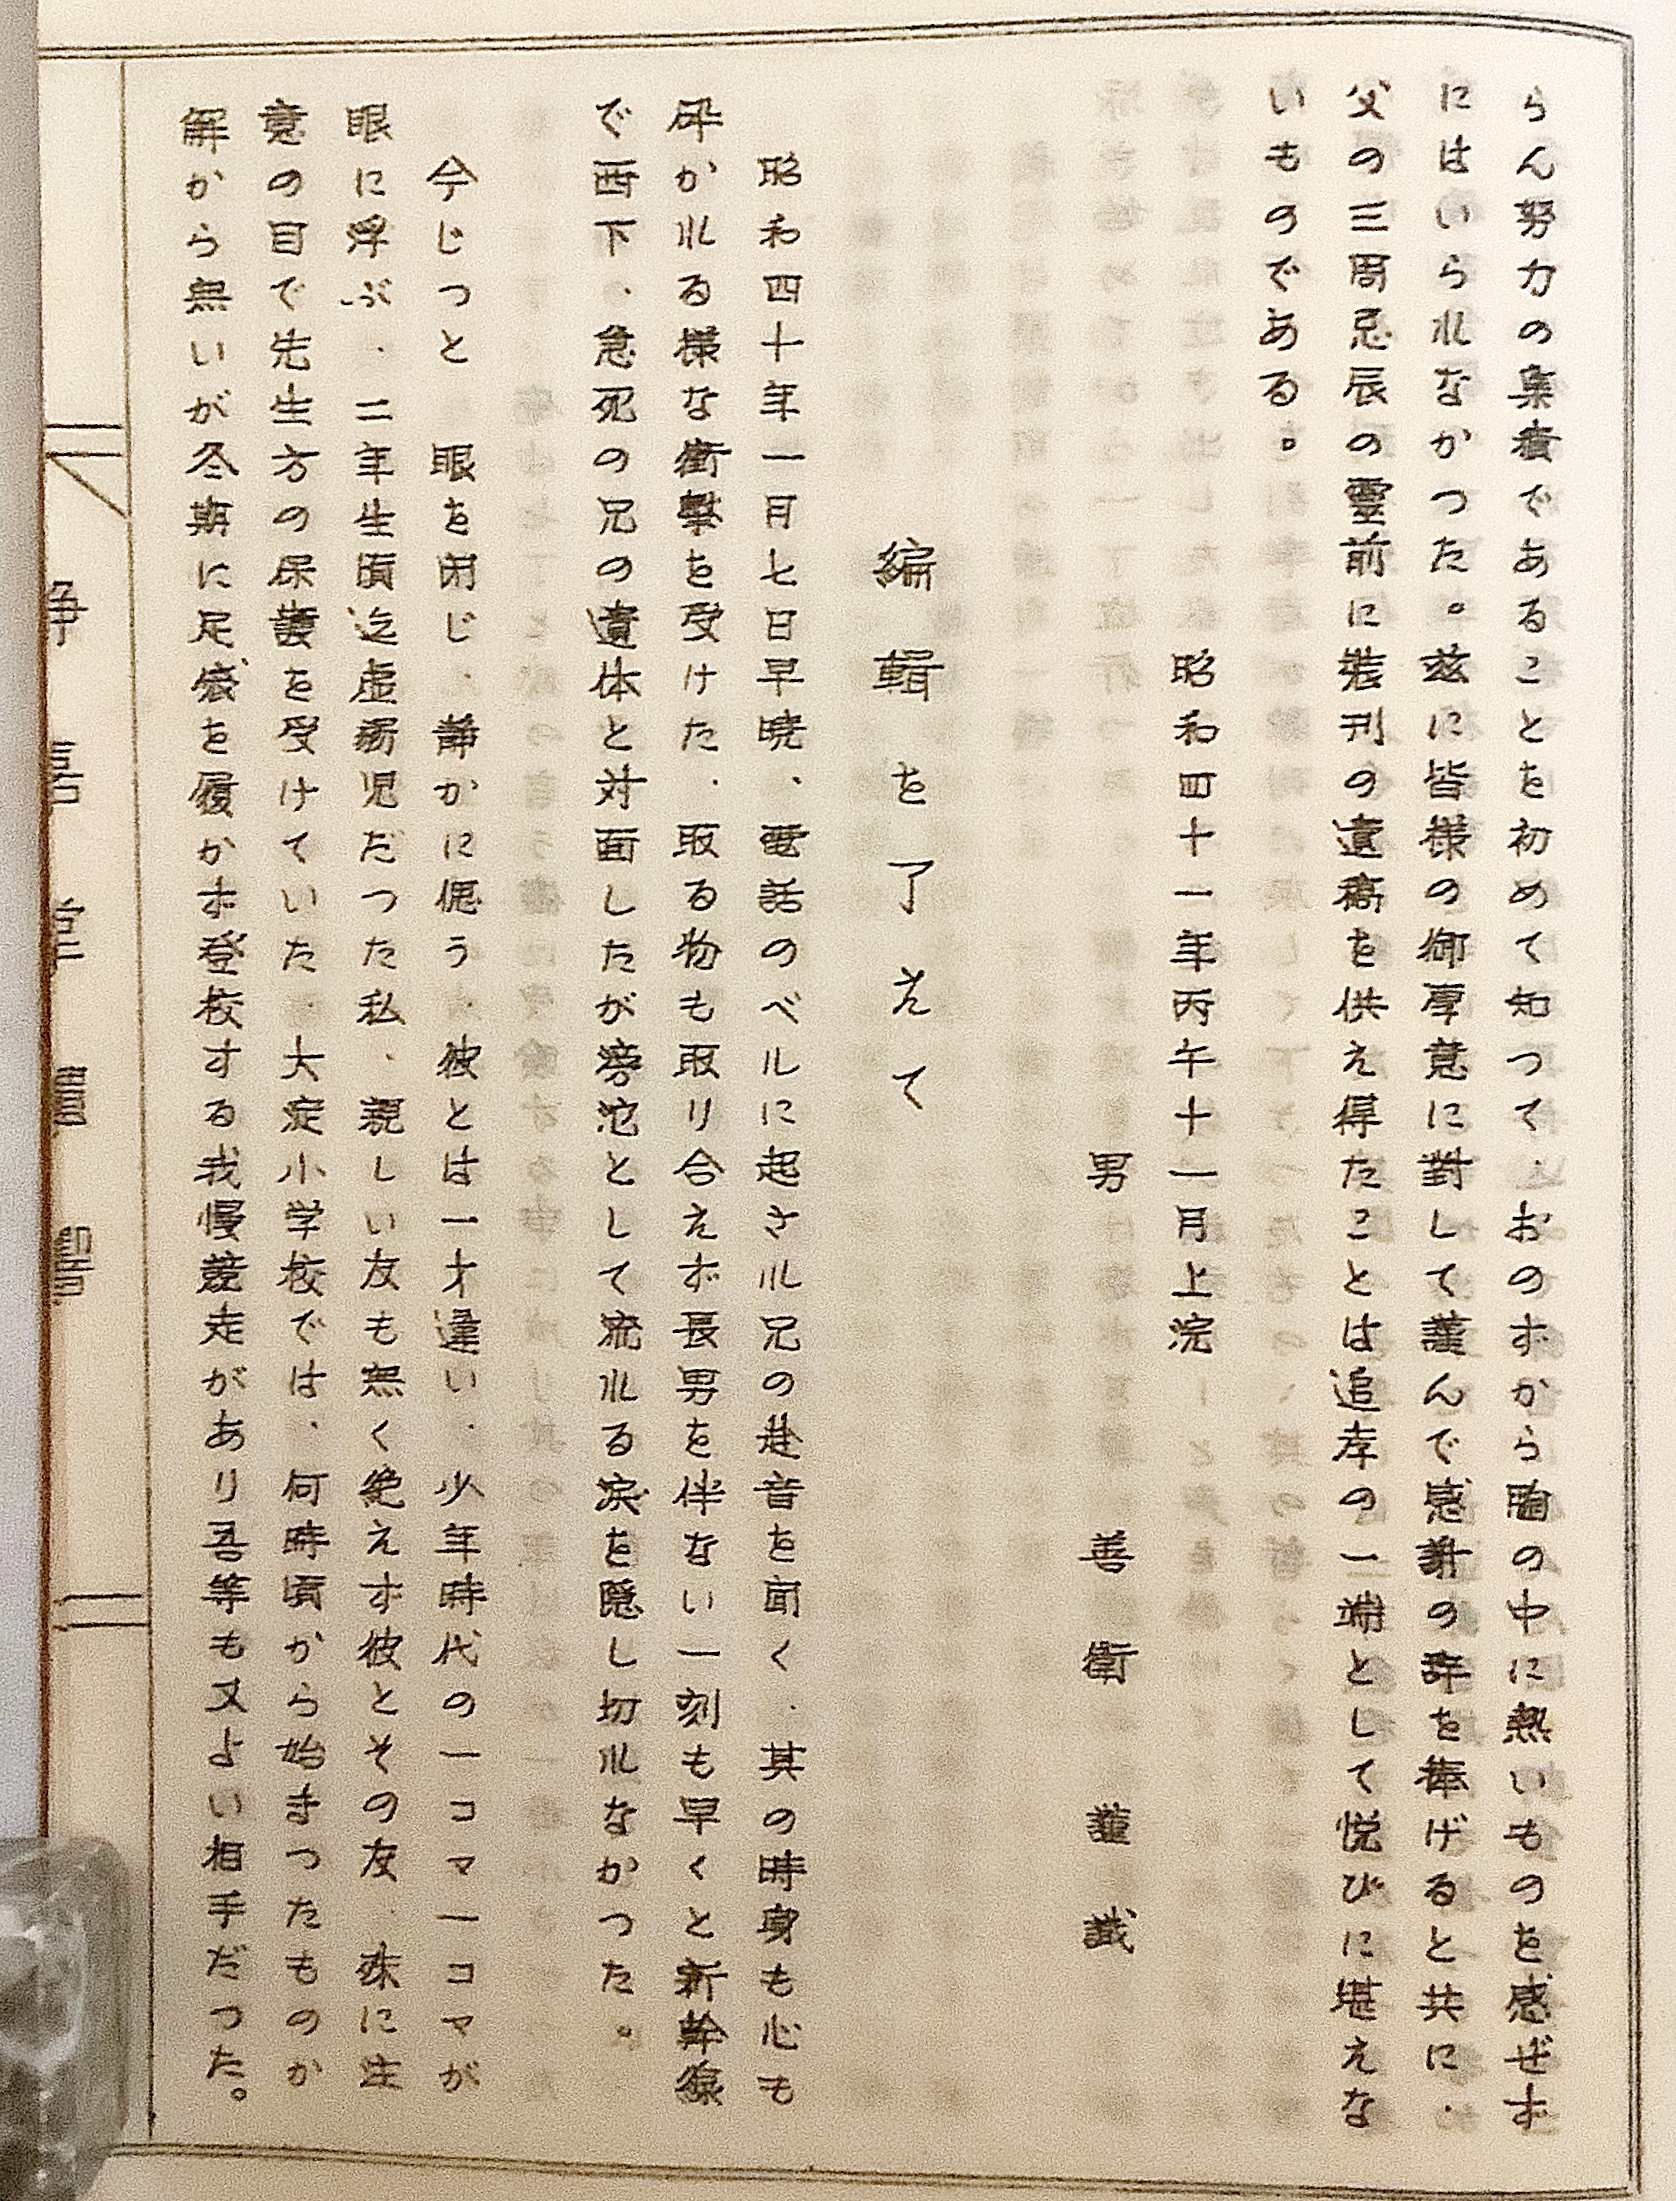 らん努力の集積であることを初めて知つて、おのずから胸の中に熱いものを感ぜず
にはいられなかつた。茲に皆様の御厚意に對して謹んで感謝の辞を捧げると共に、
父の三周忌辰の霊前に装刊の遺稿を供え得たことは追孝の一端として悦びに堪えな
いものである。
昭和四十一年丙午十一月上浣
男 善衛 謹識
編輯を了えて
昭和四十年一月七日早暁、電話のベルに起され兄の訃音を聞く、其の時身も心も
砕かれる様な衝撃を受けた、取る物も取り合えず長男を伴ない一刻も早くと新幹線
で西下、急死の兄の遺体と対面したが滂沱として流れる涙を隠し切れなかつた。
今じつと 眼を閉じ、静かに偲う、彼とは一才違い、少年時代の一コマ一コマが
眼に浮ぶ、二年生頃迄虚弱児だつた私、親しい友も無く絶えず彼とその友、殊に注
意の目で先生方の保護を受けていた、大淀小学校では、何時頃から始まつたものか
解から無いが冬期に足袋を履かず登校する我慢競走があり吾等も又よい相手だつた。